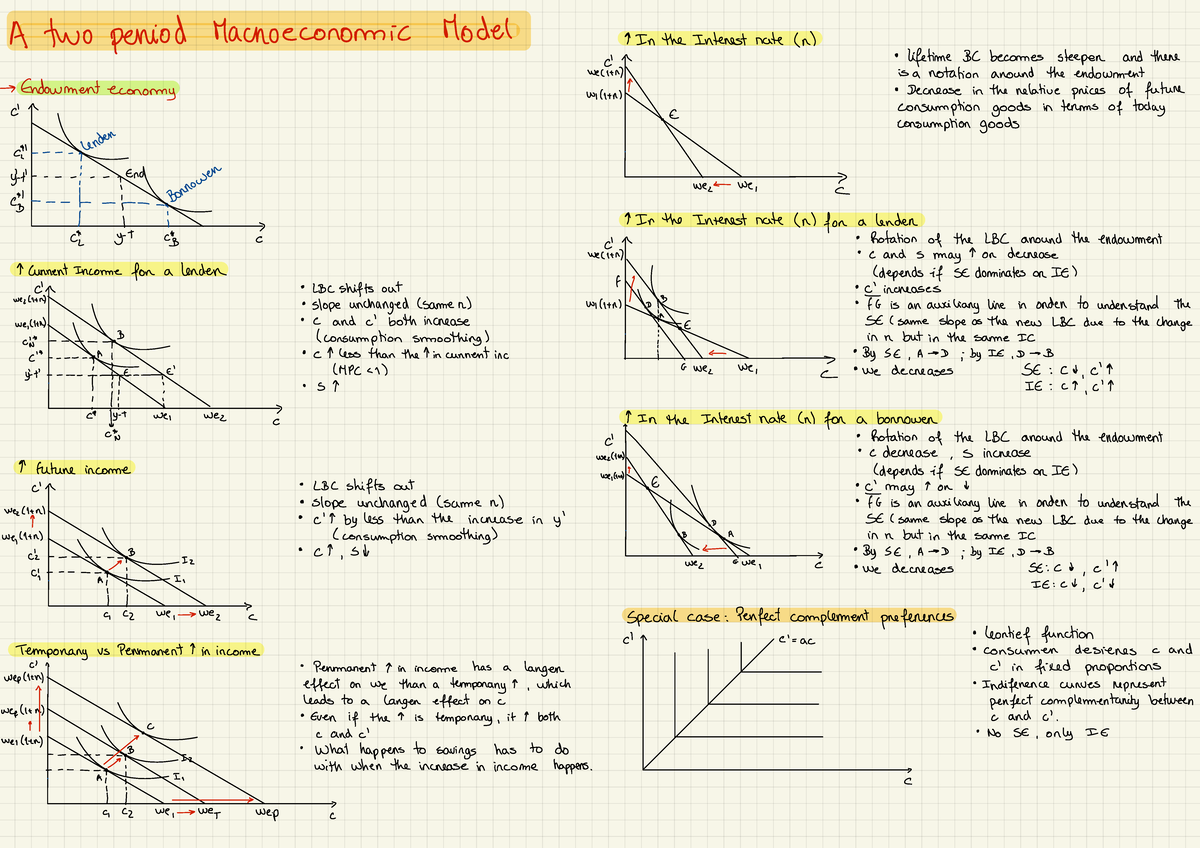 A two period Macroeconomic Model
→ Endowment economy
c'
Lender
c*'L
End
y'-t'
Borrower
c*'B
c*L
y-t
c*B
c
↑ Current Income for a lender
c'
we2(1+r)
we1(1+r)
c*'N
B
c'*
A
y'-t'
E
E'
c*
y-t
we1
we2
c
c*N
• LBC shifts out
• slope unchanged (same r)
• c and c' both increase
(consumption smmoothing)
• c ↑ less than the ↑ in current inc
(MPC <1)
• S ↑
↑ future income
c'
we2(1+r)
we1(1+r)
c'2
B
I2
c'1
A
I1
c1
c2
we1 → we2
c
• LBC shifts out
• slope unchanged (same r)
• c'↑ by less than the increase in y'
(consumption smoothing)
• c↑, S↓
Temporary vs Permanent ↑ in income
c'
wep(1+r)
weT(1+r)
we1(1+r)
C
B
I2
A
I1
c1
c2
we1 → weT
wep
c
• Permanent ↑ in income has a larger
effect on we than a temporary ↑, which
leads to a larger effect on c
• Even if the ↑ is temporary, it ↑ both
c and c'
• What happens to savings has to do
with when the increase in income happens.
↑ In the Interest rate (r)
c'
we(1+r)
w1(1+r)
E
we2 ← we1
c
• Lifetime BC becomes steeper and there
is a rotation around the endowment
• Decrease in the relative prices of future
consumption goods in terms of today
consumption goods
↑ In the Interest rate (r) for a lender
c'
we(1+r)
f
w1(1+r)
B
D
E
G
we2
we1
c
• Rotation of the LBC around the endowment
• c and s may ↑ or decrease
(depends if SE dominates or IE)
• c' increases
• fG is an auxiliary line in order to understand the
SE (same slope as the new LBC due to the change
in r but in the same IC
• By SE, A→D ; by IE, D→B
• we decreases
SE : c↓, c'↑
IE : c↑, c'↑
↑ In the Interest rate (r) for a borrower
c'
we2(1+r)
we1(1+r)
E
D
A
B
we2
G
we1
c
• Rotation of the LBC around the endowment
• c decrease, s increase
(depends if SE dominates or IE)
• c' may ↑ or ↓
• fG is an auxiliary line in order to understand the
SE (same slope as the new LBC due to the change
in r but in the same IC
• By SE, A→D ; by IE, D→B
• we decreases
SE: c↓, c'↑
IE: c↓, c'↓
Special case: Perfect complement preferences
c'
c'=ac
c
• leontief function
• consumer desieres c and
c' in fixed proportions
• Indiference curves represent
perfect complementarity between
c and c'.
• No SE, only IE